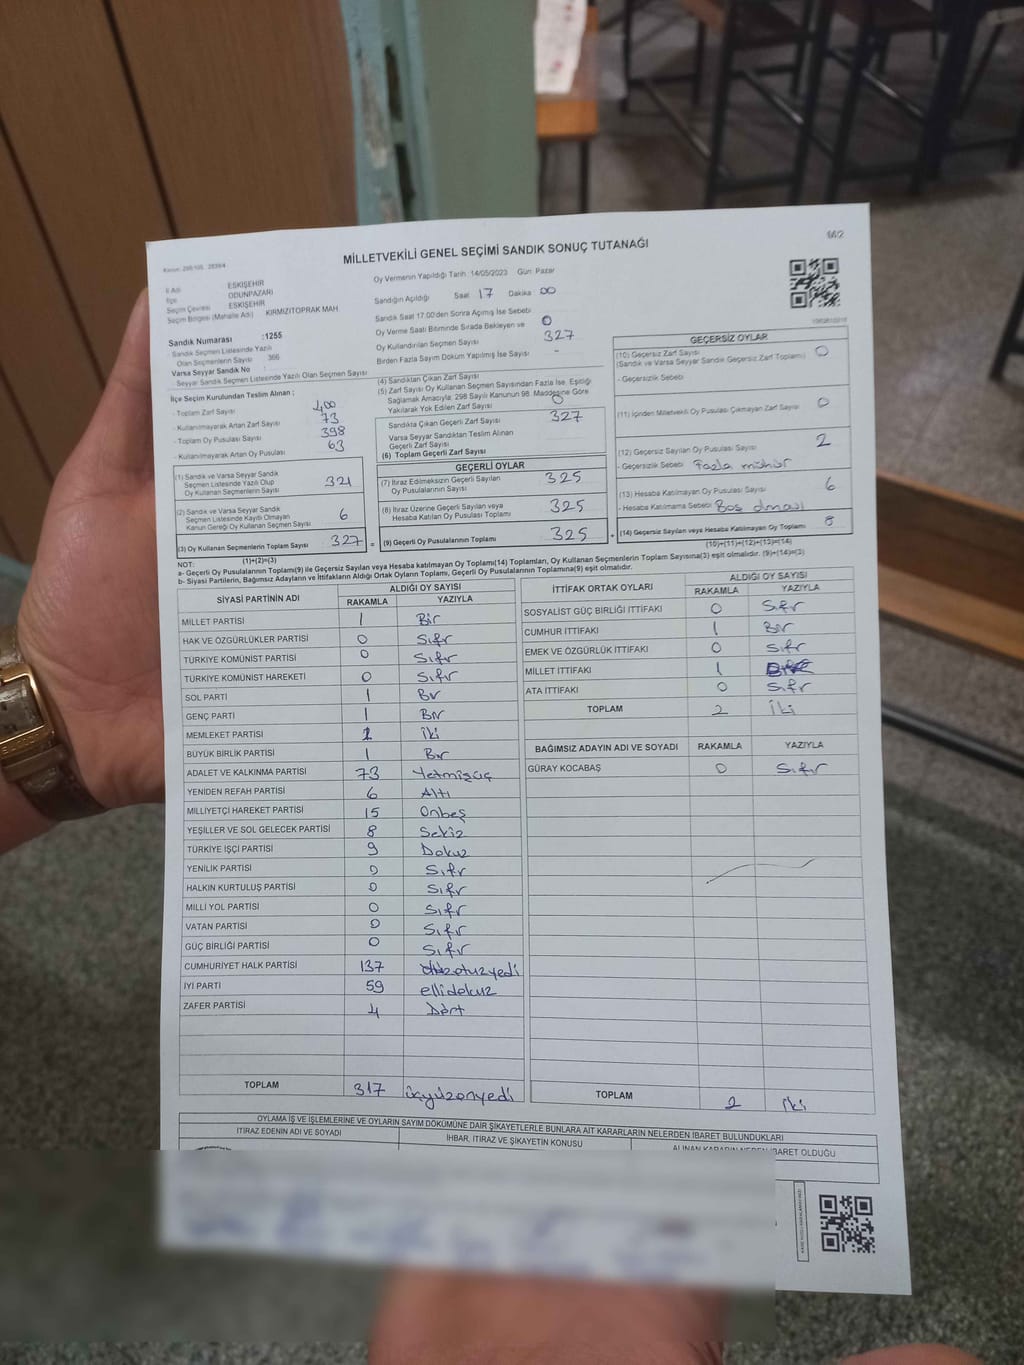 162
MİLLETVEKİLİ GENEL SEÇİMİ SANDIK SONUÇ TUTANAĞI
İl Adı ESKİŞEHİR
İlçe ODUNPAZARI
Seçim Çevresi ESKİŞEHİR
Seçim Bölgesi (Mahalle Adı) KIRMIZITOPRAK MAH
Sandık Numarası :1255
- Sandık Seçmen Listesinde Yazılı
Olan Seçmenlerin Sayısı 366
Varsa Seyyar Sandık No
- Seyyar Sandık Seçmen Listesinde Yazılı Olan Seçmen Sayısı
İlçe Seçim Kurulundan Teslim Alınan ;
- Toplam Zarf Sayısı 400
- Kullanılmayarak Artan Zarf Sayısı 73
- Toplam Oy Pusulası Sayısı 398
- Kullanılmayarak Artan Oy Pusulası 63
(1) Sandık ve Varsa Seyyar Sandık
Seçmen Listesinde Yazılı Olup
Oy Kullanan Seçmenlerin Sayısı 321
(2) Sandık ve Varsa Seyyar Sandık
Seçmen Listesinde Kayıtlı Olmayan
Kanun Gereği Oy Kullanan Seçmen Sayısı 6
(3) Oy Kullanan Seçmenlerin Toplam Sayısı 327 =
(1)+(2)=(3)
Oy Vermenin Yapıldığı Tarih :14/05/2023 Gün: Pazar
Sandığın Açıldığı Saat 17 Dakika 00
Sandık Saat 17.00'den Sonra Açılmış İse Sebebi
Oy Verme Saati Bitiminde Sırada Bekleyen ve 0
Oy Kullandırılan Seçmen Sayısı 327
Birden Fazla Sayım Döküm Yapılmış İse Sayısı -
(4) Sandıktan Çıkan Zarf Sayısı
(5) Zarf Sayısı Oy Kullanan Seçmen Sayısından Fazla İse, Eşitliği
Sağlamak Amacıyla; 298 Sayılı Kanunun 98. Maddesine Göre
Yakılarak Yok Edilen Zarf Sayısı 0
Sandıkta Çıkan Geçerli Zarf Sayısı 327
Varsa Seyyar Sandıktan Teslim Alınan
Geçerli Zarf Sayısı
(6) Toplam Geçerli Zarf Sayısı
GEÇERLİ OYLAR
(7) İtiraz Edilmeksizin Geçerli Sayılan
Oy Pusulalarının Sayısı 325
(8) İtiraz Üzerine Geçerli Sayılan veya
Hesaba Katılan Oy Pusulası Toplamı 325
(9) Geçerli Oy Pusulalarının Toplamı 325 +
GEÇERSİZ OYLAR
(10) Geçersiz Zarf Sayısı 0
(Sandık ve Varsa Seyyar Sandık Geçersiz Zarf Toplamı)
- Geçersizlik Sebebi
(11) İçinden Milletvekili Oy Pusulası Çıkmayan Zarf Sayısı 0
(12) Geçersiz Sayılan Oy Pusulası Sayısı 2
- Geçersizlik Sebebi Fazla mühür
(13) Hesaba Katılmayan Oy Pusulası Sayısı 6
- Hesaba Katılmama Sebebi Boş olması
(14) Geçersiz Sayılan veya Hesaba Katılmayan Oy Toplamı 8
(10)+(11)+(12)+(13)=(14)
NOT:
a- Geçerli Oy Pusulalarının Toplamı(9) ile Geçersiz Sayılan veya Hesaba katılmayan Oy Toplamı(14) Toplamları, Oy Kullanan Seçmenlerin Toplam Sayısına(3) eşit olmalıdır. (9)+(14)=(3)
b- Siyasi Partilerin, Bağımsız Adayların ve İttifakların Aldığı Ortak Oyların Toplamı, Geçerli Oy Pusulalarının Toplamına(9) eşit olmalıdır.
SİYASİ PARTİNİN ADI ALDIĞI OY SAYISI
RAKAMLA YAZIYLA
MİLLET PARTİSİ 1 Bir
HAK VE ÖZGÜRLÜKLER PARTİSİ 0 Sıfır
TÜRKİYE KOMÜNİST PARTİSİ 0 Sıfır
TÜRKİYE KOMÜNİST HAREKETİ 0 Sıfır
SOL PARTİ 1 Bir
GENÇ PARTİ 1 Bir
MEMLEKET PARTİSİ 2 İki
BÜYÜK BİRLİK PARTİSİ 1 Bir
ADALET VE KALKINMA PARTİSİ 73 Yetmişüç
YENİDEN REFAH PARTİSİ 6 Altı
MİLLİYETÇİ HAREKET PARTİSİ 15 Onbeş
YEŞİLLER VE SOL GELECEK PARTİSİ 8 Sekiz
TÜRKİYE İŞÇİ PARTİSİ 9 Dokuz
YENİLİK PARTİSİ 0 Sıfır
HALKIN KURTULUŞ PARTİSİ 0 Sıfır
MİLLİ YOL PARTİSİ 0 Sıfır
VATAN PARTİSİ 0 Sıfır
GÜÇ BİRLİĞİ PARTİSİ 0 Sıfır
CUMHURİYET HALK PARTİSİ 137 yüzotuzyedi
İYİ PARTİ 59 ellidokuz
ZAFER PARTİSİ 4 Dört
TOPLAM 317 üçyüzonyedi
İTTİFAK ORTAK OYLARI ALDIĞI OY SAYISI
RAKAMLA YAZIYLA
SOSYALİST GÜÇ BİRLİĞİ İTTİFAKI 0 Sıfır
CUMHUR İTTİFAKI 1 Bir
EMEK VE ÖZGÜRLÜK İTTİFAKI 0 Sıfır
MİLLET İTTİFAKI 1
ATA İTTİFAKI 0 Sıfır
TOPLAM 2 İki
BAĞIMSIZ ADAYIN ADI VE SOYADI RAKAMLA YAZIYLA
GÜRAY KOCABAŞ 0 Sıfır
TOPLAM 2 iki
OYLAMA İŞ VE İŞLEMLERİNE VE OYLARIN SAYIM DÖKÜMÜNE DAİR ŞİKAYETLERLE BUNLARA AİT KARARLARIN NELERDEN İBARET BULUNDUKLARI
İTİRAZ EDENİN ADI VE SOYADI İHBAR, İTİRAZ VE ŞİKAYETİN KONUSU ALINAN KARARIN NEDEN İBARET OLDUĞU